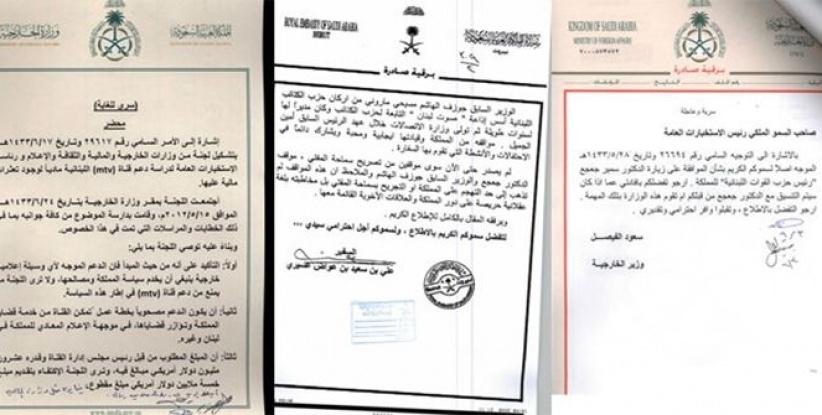 وزارة الخارجية
المملكة العربية السعودية
(سري للغاية)
محضر
إشارة إلى الأمر السامي رقم ٢٩٦١٧ وتاريخ ١٤٣٣/٦/١٧هـ
بتشكيل لجنة من وزارات الخارجية والمالية والثقافة والإعلام و
الاستخبارات العامة لدراسة دعم قناة (mtv) اللبنانية مادياً لوجود تعثرات
مالية عليها.
اجتمعت اللجنة بمقر وزارة الخارجية بتاريخ ١٤٣٣/٦/٢٤هـ
الموافق ٢٠١٢/٥/١٥م، وقامت بدارسة الموضوع من كافة جوانبه بما في
ذلك الخطابات والمراسلات التي تمت في هذا الخصوص.
وبناءً عليه توصي اللجنة بما يلي:
أولاً: التأكيد على أنه من حيث المبدأ فان الدعم الموجه لأي وسيلة إعلامية
خارجية ينبغي أن يخدم سياسة المملكة ومصالحها، ولا ترى اللجنة
يمنع من دعم قناة (mtv) في إطار هذه السياسة.
ثانياً: أن يكون الدعم مصحوباً بخطة عمل تمكن القناة من خدمة قضايا
المملكة وتؤازر قضاياها، في موجهة الإعلام المعادي للمملكة في
لبنان وغيره.
ثالثاً: أن المبلغ المطلوب من قبل رئيس مجلس إدارة القناة وقدره عشرون
مليون دولار أمريكي مبالغ فيه، وترى اللجنة الاكتفاء بتقديم مبلغ
خمسة ملايين دولار أمريكي مبلغ مقطوع،
ROYAL EMBASSY OF SAUDI ARABIA
BEIRUT
بيروت
برقية صادرة
الوزير السابق جوزف الهاشم مسيحي ماروني من اركان حزب الكتائب
اللبنانية أسس إذاعة "صوت لبنان" التابعة لحزب الكتائب وكان مديراً لها
لسنوات طويلة ثم تولى وزارة الاتصالات خلال عهد الرئيس السابق أمين
الجميل. مواقفه من المملكة وقيادتها ايجابية ومحبة ويشارك دائماً في
الاحتفالات والأنشطة التي تقوم بها السفارة.
لم يصدر حتى الآن سوى موقفين من تصريح سماحة المفتي، موقف
الدكتور جعجع والوزير السابق جوزف الهاشم والملاحظ ان هذه المواقف لم
تذهب إلى حد التهجم على المملكة أو التجريح بسماحة المفتي بل مخاطبته بلغة
عقلانية حريصة على دور المملكة والعلاقات الأخوية القائمة معها.
ويرفقه المقال بالكامل للإطلاع الكريم.
لتفضل سموكم الكريم بالاطلاع، ولسموكم أجل احترامي سيدي ...
السفير
علي بن سعيد بن عواض العسيري
KINGDOM OF SAUDI ARABIA
MINISTRY OF FOREIGN AFFAIRS
برقية صادرة
سرية وعاجلة
صاحب السمو الملكي رئيس الاستخبارات العامة
بالاشارة الى التوجيه السامي رقم ٢٦٦٩٤ وتاريخ ١٤٣٣/٥/٢٨هـ
الموجه اصلاً لسموكم الكريم بشأن الموافقة على زيارة الدكتور سمير جعجع
"رئيس حزب القوات اللبنانية" للمملكة. ارجو تفضلكم بإفادتي عما اذا كان
سيتم التنسيق مع الدكتور جعجع من قبلكم ام تقوم هذه الوزارة بتلك المهمة.
ارجو التفضل بالاطلاع، وتقبلوا وافر احترامي وتقديري.
سعود الفيصل
وزير الخارجية